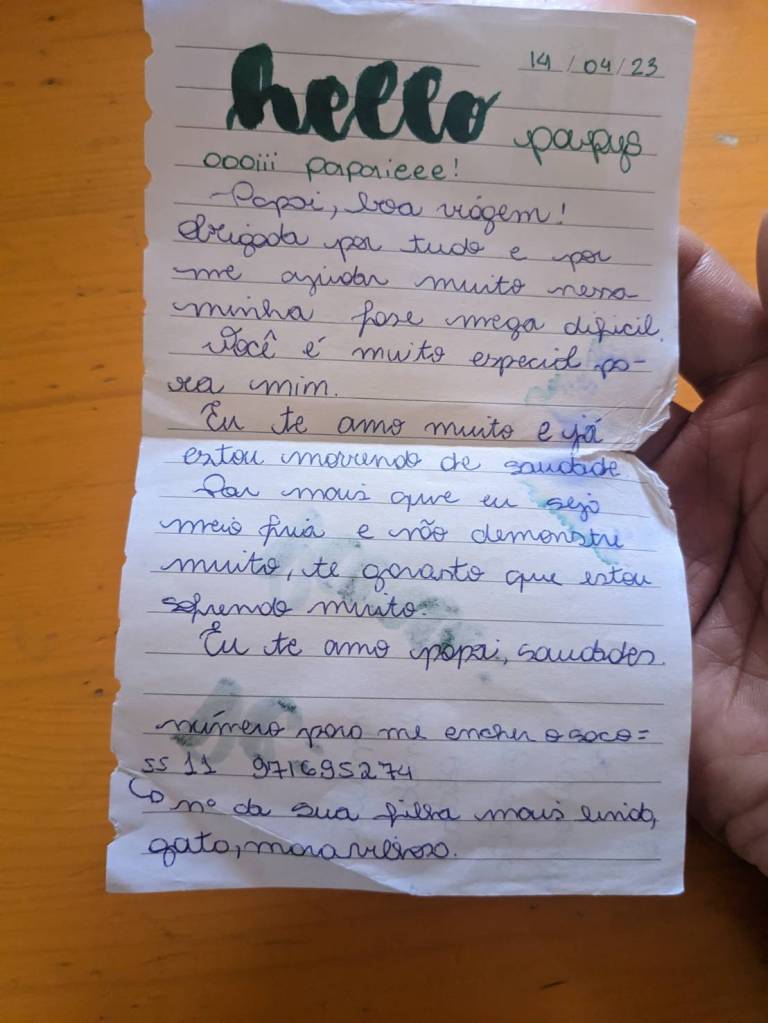 14/04/23
hello papys
oooiii papaieee!
-Papai, boa viagem!
Obrigada por tudo e por
me ajudar muito nessa
minha fase mega dificil.
Você é muito especial pa-
ra mim.
Eu te amo muito e já
estou morrendo de saudade.
Por mais que eu seja
meio fria e não demonstre
muito, te garanto que estou
sofrendo muito.
Eu te amo papai, saudades.
número para me encher o saco =
55 11 971695274
nº da sua filha mais linda,
gata, maravilhosa.